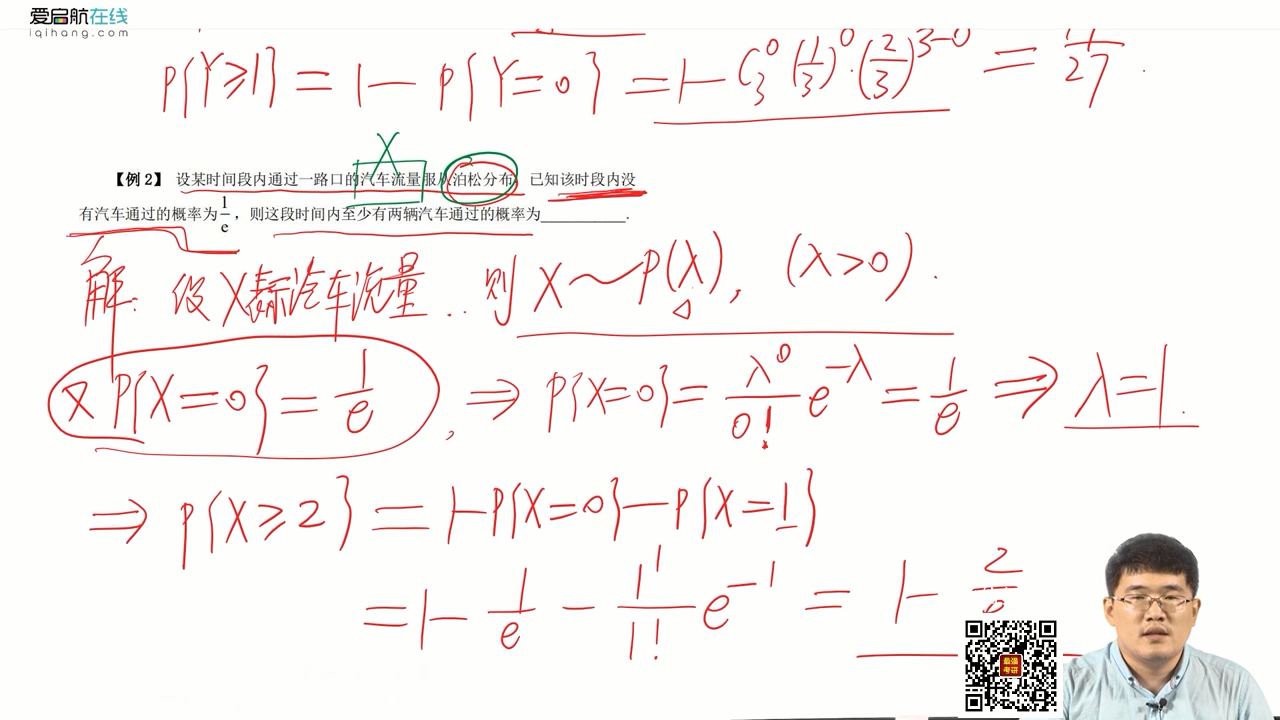 爱启航在线
iqihang.com
P{Y≥1} = 1 - P{Y=0} = 1 - C₃⁰(1/3)⁰·(2/3)³⁻⁰ = /27.
X
【例 2】 设某时间段内通过一路口的汽车流量服从泊松分布 已知该时段内没
有汽车通过的概率为1/e，则这段时间内至少有两辆汽车通过的概率为___________.
解: 设X表示汽车流量. 则 X~P(λ), (λ>0).
又 P{X=0}=1/e, ⇒ P{X=0}=λ⁰/0! e^-λ = 1/e ⇒ λ=1.
⇒ P{X≥2} = 1-P{X=0}-P{X=1}
= 1 - 1/e - 1¹/1! e⁻¹ = 1 - 2/
最强
考研